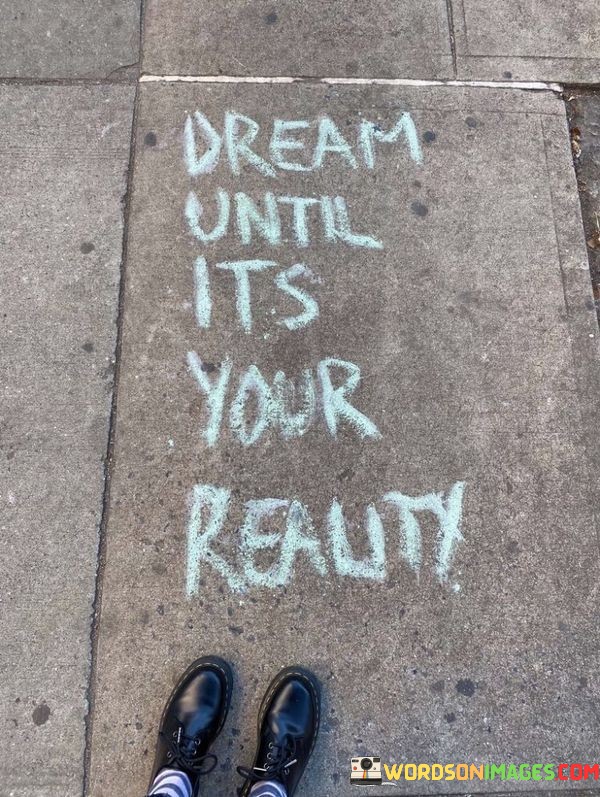 DREAM
UNTIL
ITS
YOUR
REALITY
WORDSONIMAGES.COM